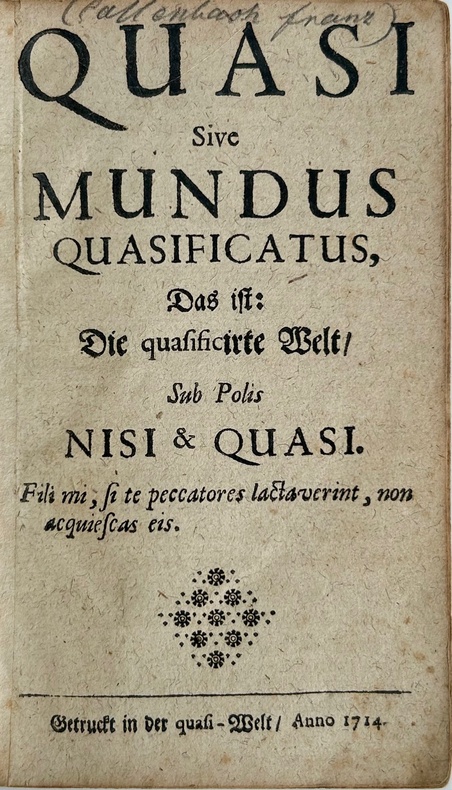 (Callenbach franz)
QUASI
Sive
MUNDUS
QUASIFICATUS,
Das ist:
Die quaſificirte Welt/
Sub Polis
NISI & QUASI.
Fili mi, ſi te peccatores lactaverint, non
acquieſcas eis.
Getruckt in der quaſi-Welt/ Anno 1714.